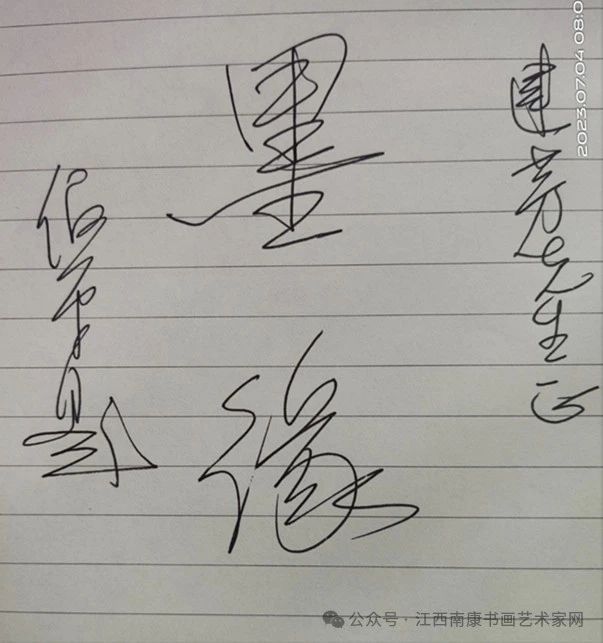 建芳先生正
墨缘
题
2023.07.04 08:0
公众号·江西南康书画艺术家网